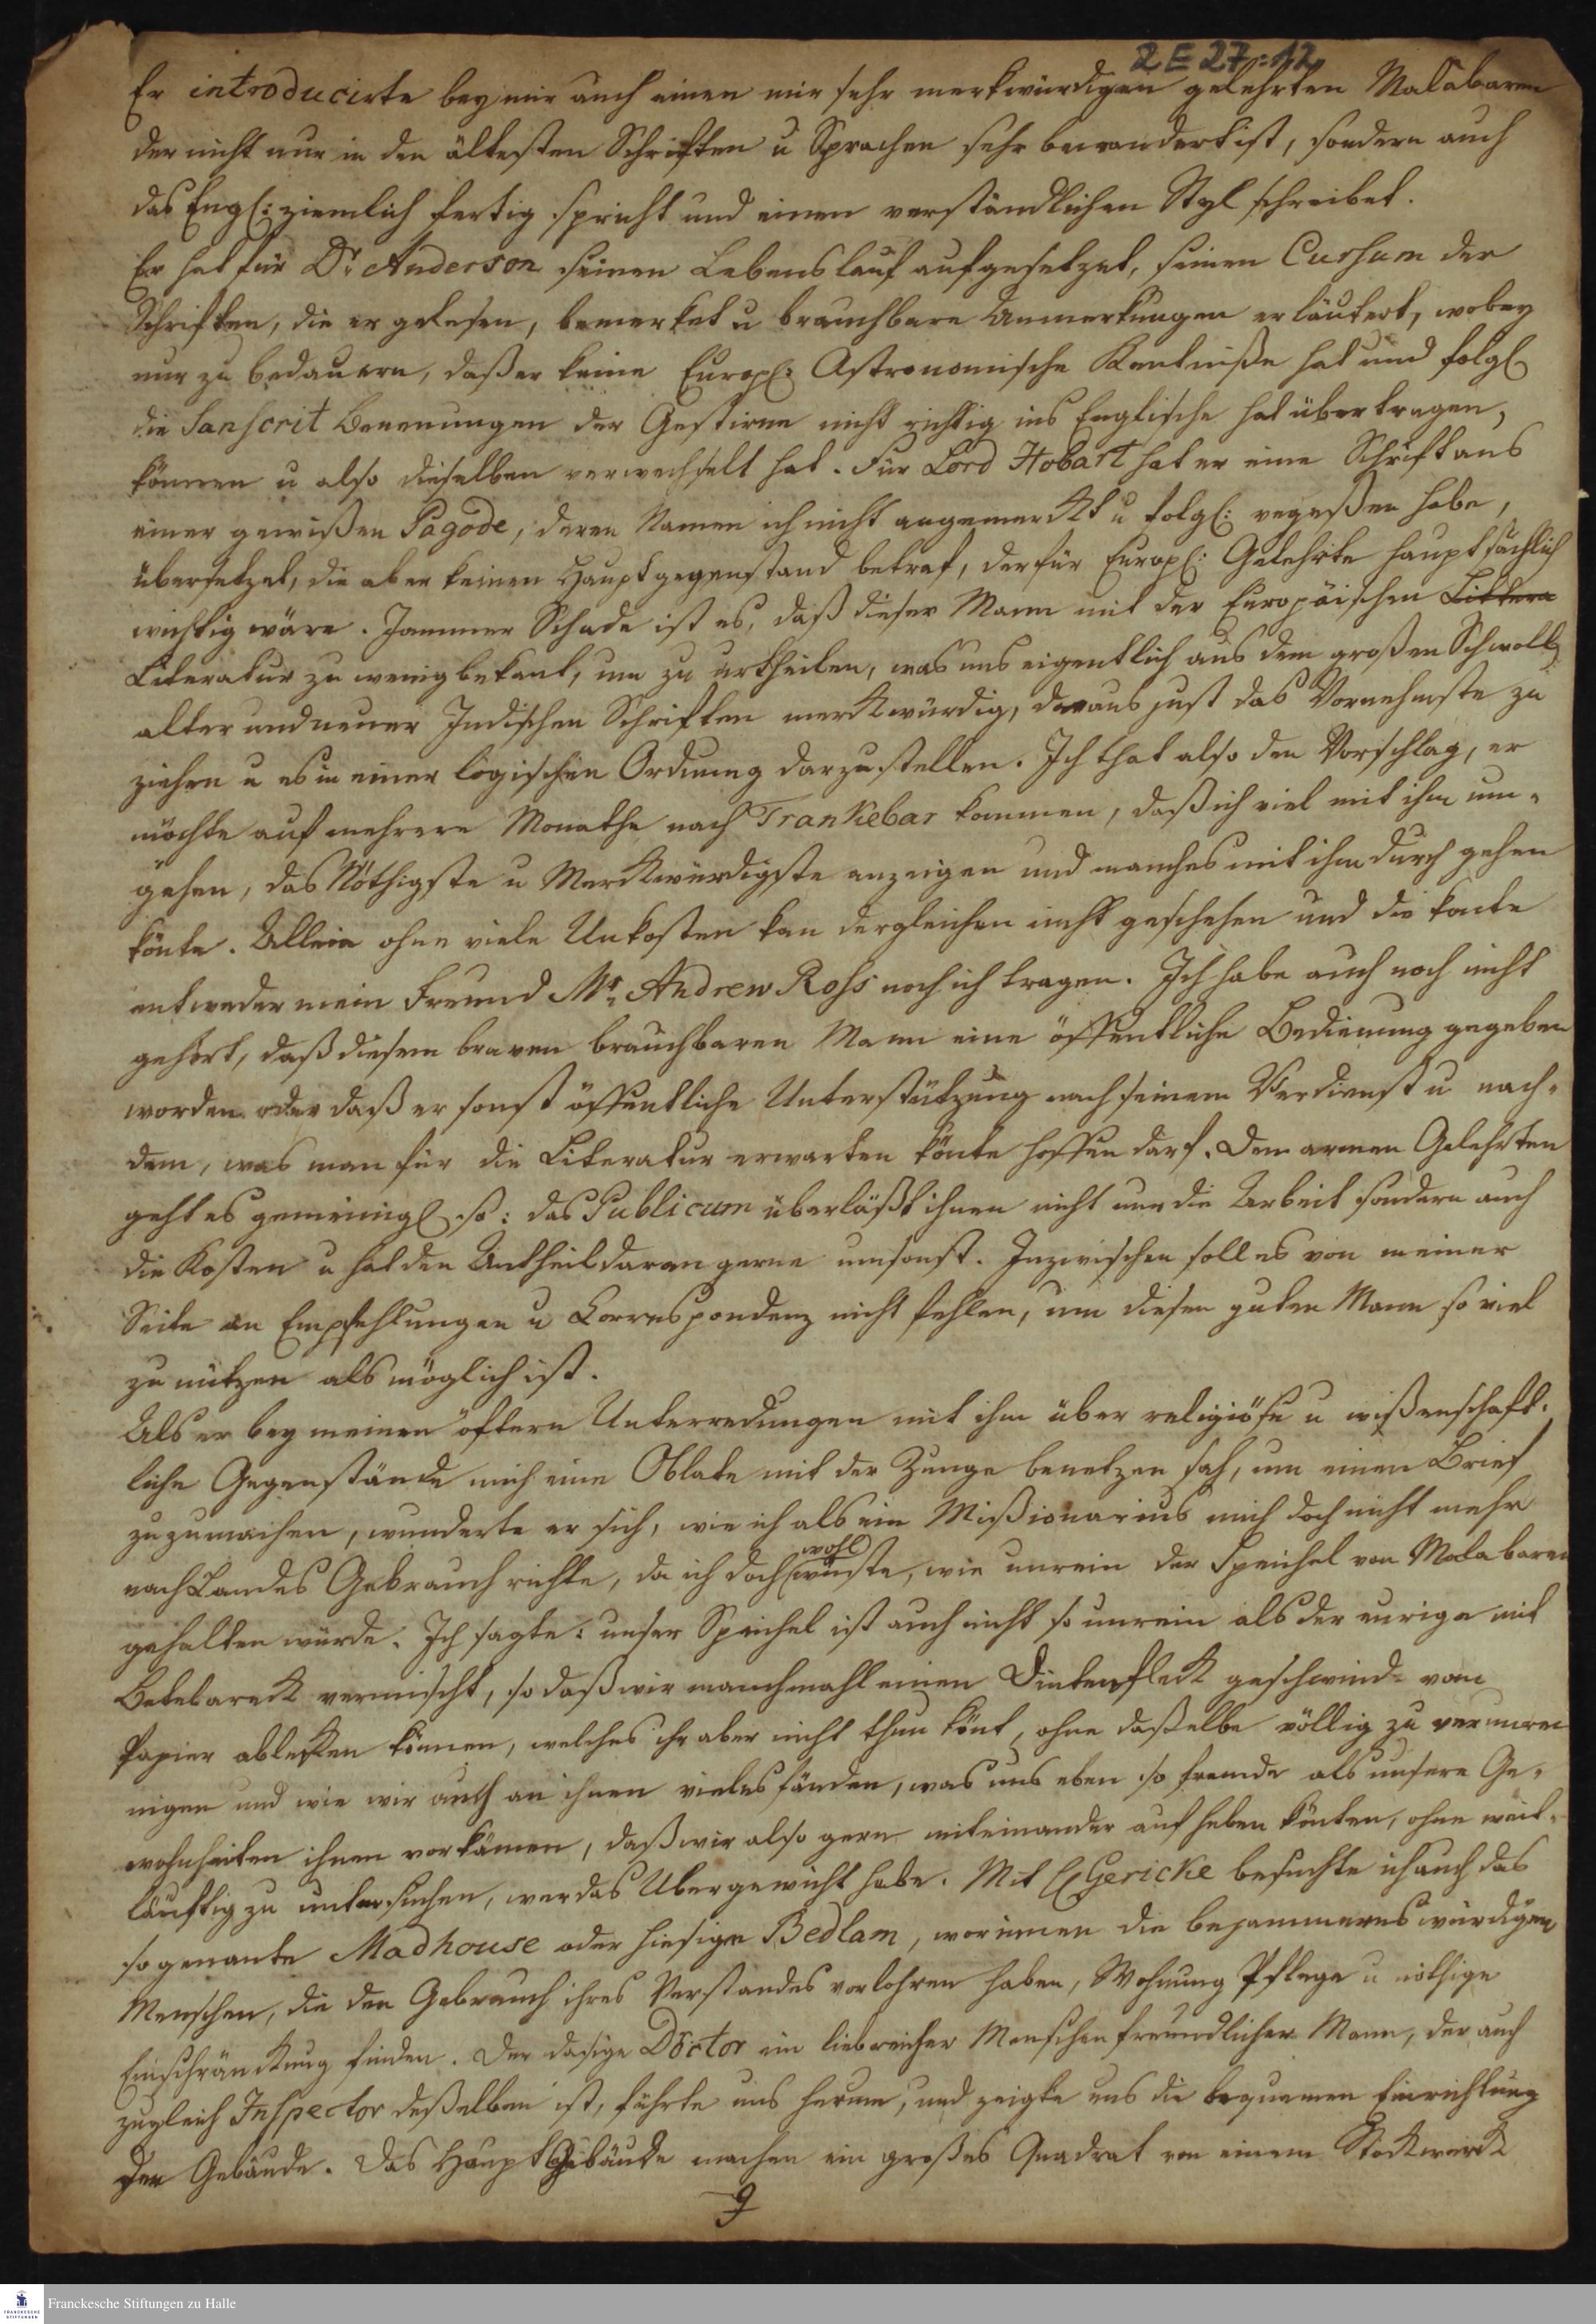 2E 27:12
Er introducirte bey mir auch einen mir sehr merkwürdigen gelehrten Malabaren
der nicht nur in den ältesten Schriften u Sprachen sehr bewandert ist, sondern auch
das Engl: ziemlich fertig spricht und einen verständlichen Styl schreibet.
Er hat für Dr Anderson seinen Lebenslauf aufgesetzet, seinen Cursum der
Schriften, die er gelesen, bemerket u brauchbare Anmerkungen erläutert, wobey
nur zu bedauern, daß er keine Europ: Astronomische Kentniße hat und folgl
die Sanscrit Benennungen der Gestirne nicht richtig ins Englische hat übertragen,
können u also dieselben verwechselt hat. Für Lord Hobart hat er eine Schrift aus
einer gewißen Pagode, deren Namen ich nicht angemerckt u folgl: vergeßen habe,
übersetzet, die aber keinen Hauptgegenstand betraf, der für Europ: Gelehrte hauptsächlich
wichtig wäre. Jammer Schade ist es, daß dieser Mann mit der Europäischen Littera
Literatur zu wenig bekant, um zu urtheilen, was uns eigentlich aus dem großen Schwall
alter und neuer Indischen Schriften merckwürdig, daraus just das Vornehmste zu
ziehen u es in einer logischen Ordnung darzustellen. Ich that also den Vorschlag, er
möchte auf mehrere Monathe nach Trankebar kommen, daß ich viel mit ihm um-
gehen, das Nöthigste u Merckwürdigste anzeigen und manches mit ihm durch gehen
könte. Allein ohne viele Unkosten kan dergleichen nicht geschehen und die konte
entweder mein Freund Mr Andrew Ross noch ich tragen. Ich habe auch noch nicht
gehört, daß diesem braven brauchbaren Mann eine öffentliche Bedienung gegeben
worden oder daß er sonst öffentliche Unterstützung nach seinem Verdienst u nach-
dem, was man für die Literatur erwarten könte hoffen darf. Den armen Gelehrten
geht es gemeinigl so: das Publicum überläßt ihnen nicht nur die Arbeit sondern auch
die Kosten u hat den Antheil daran gerne umsonst. Inzwischen soll es von meiner
Seite an Empfehlungen u Correspondenz nicht fehlen, um diesen guten Mann so viel
zu nützen als möglich ist.
Als er bey meinen öftern Unterredungen mit ihm über religiöse u wißenschaft-
liche Gegenstände mich eine Oblate mit der Zunge benetzen sah, um einen Brief
zuzumachen, wunderte er sich, wie ich als ein Mißionarius mich doch nicht mehr
nach Landes Gebrauch richte, da ich doch wohl wüste, wie unrein der Speichel von Malabaren
gehalten würde. Ich sagte: unser Speichel ist auch nicht so unrein als der eurige mit
Betelareck vermischt, so daß wir manchmahl einen Dintenfleck geschwind vom
Papier ablecken können, welches ihr aber nicht thun könt, ohne daßelbe völlig zu verunrei
nigen und wie wir auch an ihnen vieles fänden, was uns eben so fremde als unsere Ge-
wohnheiten ihnen vorkämen, daß wir also gern miteinander aufheben könten, ohne weit-
läuftig zu untersuchen, wer das Übergewicht habe. Mit H Gericke besuchte ich auch das
so genante Madhouse oder hiesige Bedlam, worinnen die bejammernswürdigen
Menschen, die den Gebrauch ihres Verstandes verlohren haben, Wohnung Pflege u nöthige
Einschränckung finden. Der dasige Doctor ein liebreicher Menschenfreundlicher Mann, der auch
zugleich Inspector deßelben ist, führte uns herum, und zeigte uns die bequemen Einrichtung
der Gebäude. Das Hauptgebäude machen ein großes Quadrat von einem Stockwerck
9
Franckesche Stiftungen zu Halle
FRANCKESCHE
STIFTUNGEN